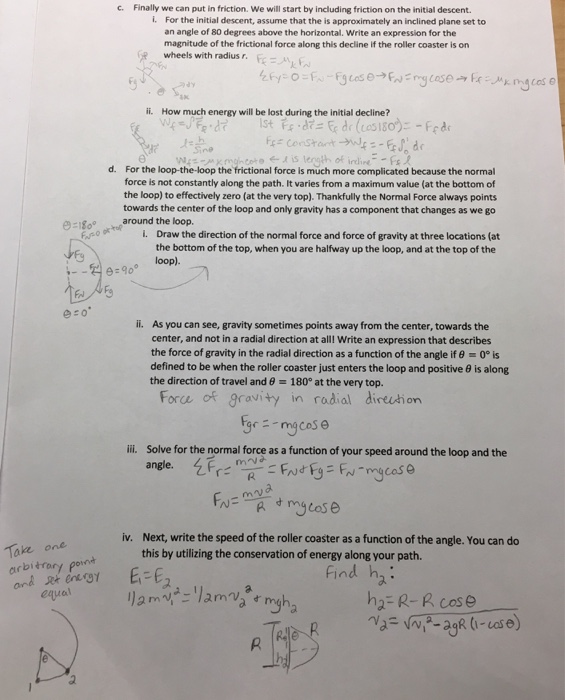 c. Finally we can put in friction. We will start by including friction on the initial descent.
i. For the initial descent, assume that the is approximately an inclined plane set to
an angle of 80 degrees above the horizontal. Write an expression for the
magnitude of the frictional force along this decline if the roller coaster is on
wheels with radius r. Fs = μk FN
ΣFy = 0 = FN - Fg cosθ → FN = mg cosθ → Fs = μk mg cosθ
ii. How much energy will be lost during the initial decline?
Wf = ∫ Fs · dr 1st Fs · dr = Fs dr (cos180°) = - Fs dr
l = h/sinθ Fs = constant → Wf = - Fs ∫ dr
Wf = -μk mgh cotθ ← l is length of incline = - Fs l
d. For the loop-the-loop the frictional force is much more complicated because the normal
force is not constantly along the path. It varies from a maximum value (at the bottom of
the loop) to effectively zero (at the very top). Thankfully the Normal Force always points
towards the center of the loop and only gravity has a component that changes as we go
around the loop.
θ = 180°
FN = 0 at top
i. Draw the direction of the normal force and force of gravity at three locations (at
the bottom of the top, when you are halfway up the loop, and at the top of the
loop).
Fg
θ = 90°
FN Fg
θ = 0°
ii. As you can see, gravity sometimes points away from the center, towards the
center, and not in a radial direction at all! Write an expression that describes
the force of gravity in the radial direction as a function of the angle if θ = 0° is
defined to be when the roller coaster just enters the loop and positive θ is along
the direction of travel and θ = 180° at the very top.
Force of gravity in radial direction
Fgr = -mg cosθ
iii. Solve for the normal force as a function of your speed around the loop and the
angle. ΣFr = mv²/R = FN + Fg = FN - mg cosθ
FN = mv²/R + mg cosθ
iv. Next, write the speed of the roller coaster as a function of the angle. You can do
this by utilizing the conservation of energy along your path.
Take one
arbitrary point
and set energy
equal
E1 = E2
1/2 mv1² = 1/2 mv2² + mgh2
Find h2:
h2 = R - R cosθ
v2 = √v1² - 2gR (1 - cosθ)
R θ R
h2
θ
1 2